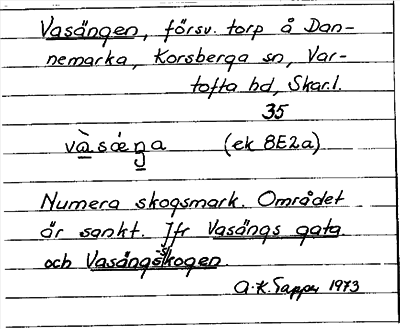 Vasängen, försv. torp å Dan-
nemarka, Korsberga sn, Var-
tofta hd, Skar.l.
35
(ek 8E2a)
Numera skogsmark. Området
är sankt. Jfr Vasängs gata
och Vasängsskogen.
A.K. Tappy 1973